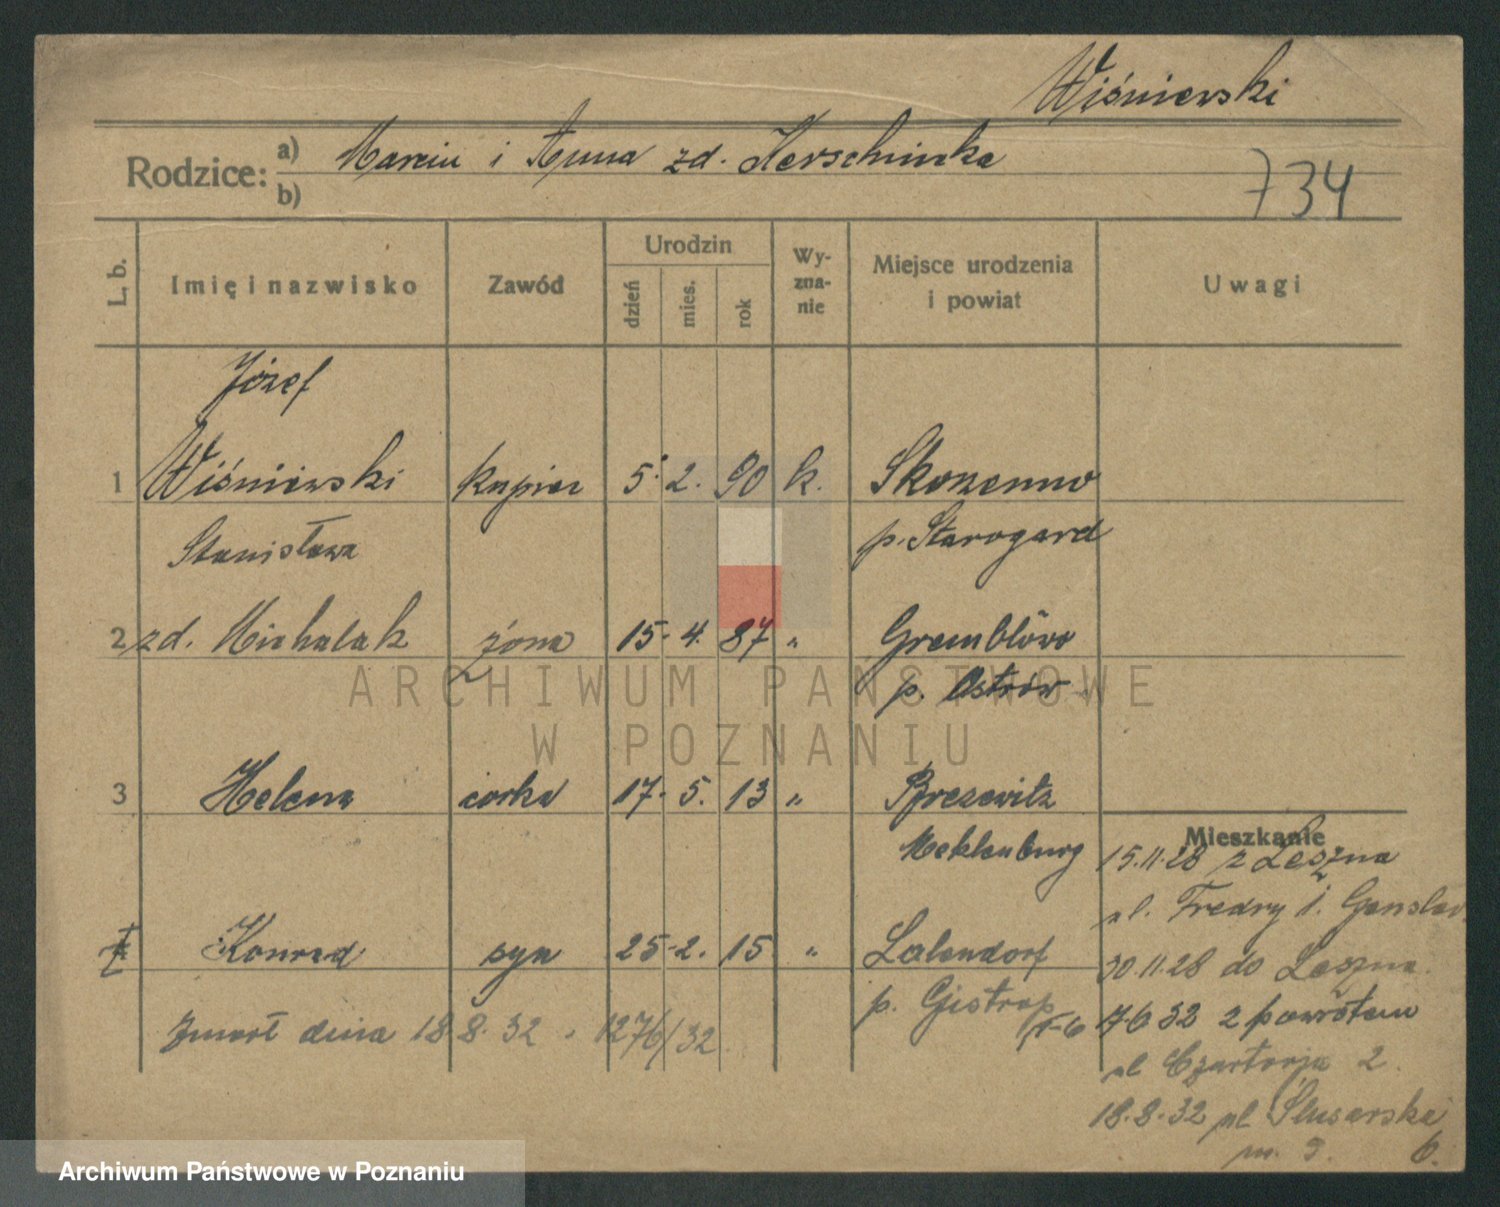 Wiśniewski
Rodzice: a) Marcin i Anna zd. Herschinka
b)
734
L. b. Imię i nazwisko Zawód Urodzin dzień mies. rok Wyznanie Miejsce urodzenia i powiat Uwagi
Józef
1 Wiśniewski kupiec 5. 2. 90 k.
p. Starogard
Stanisława
2 zd. Michalak żona 15. 4. 87 "
p. Ostrów
3 Helena córka 17. 5. 13 "
Meklenburg
Konrad syn 25. 2. 15 " Lalendorf
p. Gistrop
Zmarł dnia 18 8. 32 . 1276/32.
Mieszkanie
15.11.28 z Leszna
ul. Fredry 1.
30.11.28 do Leszna.
7 6 32 z powrotem
ul Czartorja 2.
18.8.32 ul Ślusarska
m. 9. 6.
ARCHIWUM PAŃSTWOWE
W POZNANIU
Archiwum Państwowe w Poznaniu